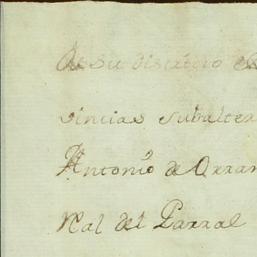 de su distrito
vincias subalter
Antonio de Orran
Rl. del Parral